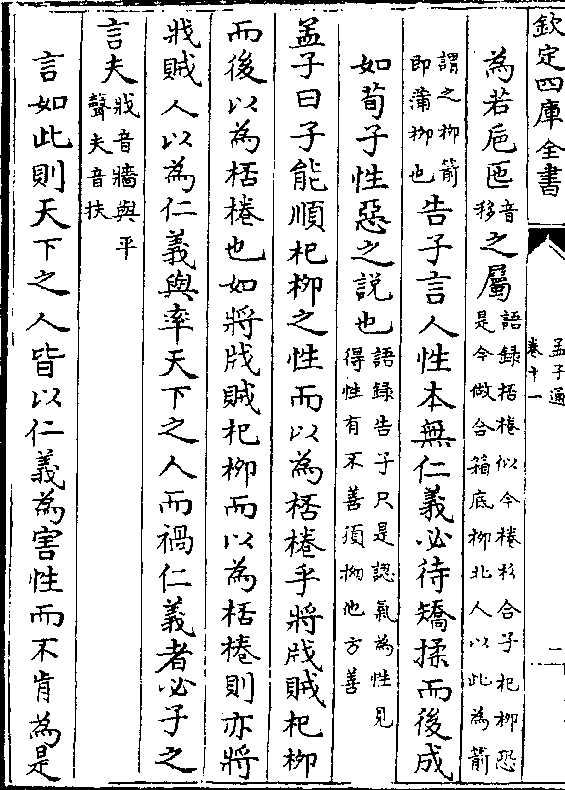 欽定四庫全書
孟子通
卷十一
二
為若巵匜音移之屬語録桮棬似今棬杉合子杞栁恐是今做合箱底栁北人以此為箭
謂之栁箭即蒲栁也告子言人性本無仁義必待矯揉而後成
如荀子性惡之說也語録告子只是認氣為性見得性有不善須拗他方善
孟子曰子能順杞栁之性而以為桮棬乎將戕賊杞栁
而後以為桮棬也如將戕賊杞栁而以為桮棬則亦將
戕賊人以為仁義與率天下之人而禍仁義者必子之
言夫戕音牆與平聲夫音扶
言如此則天下之人皆以仁義為害性而不肯為是